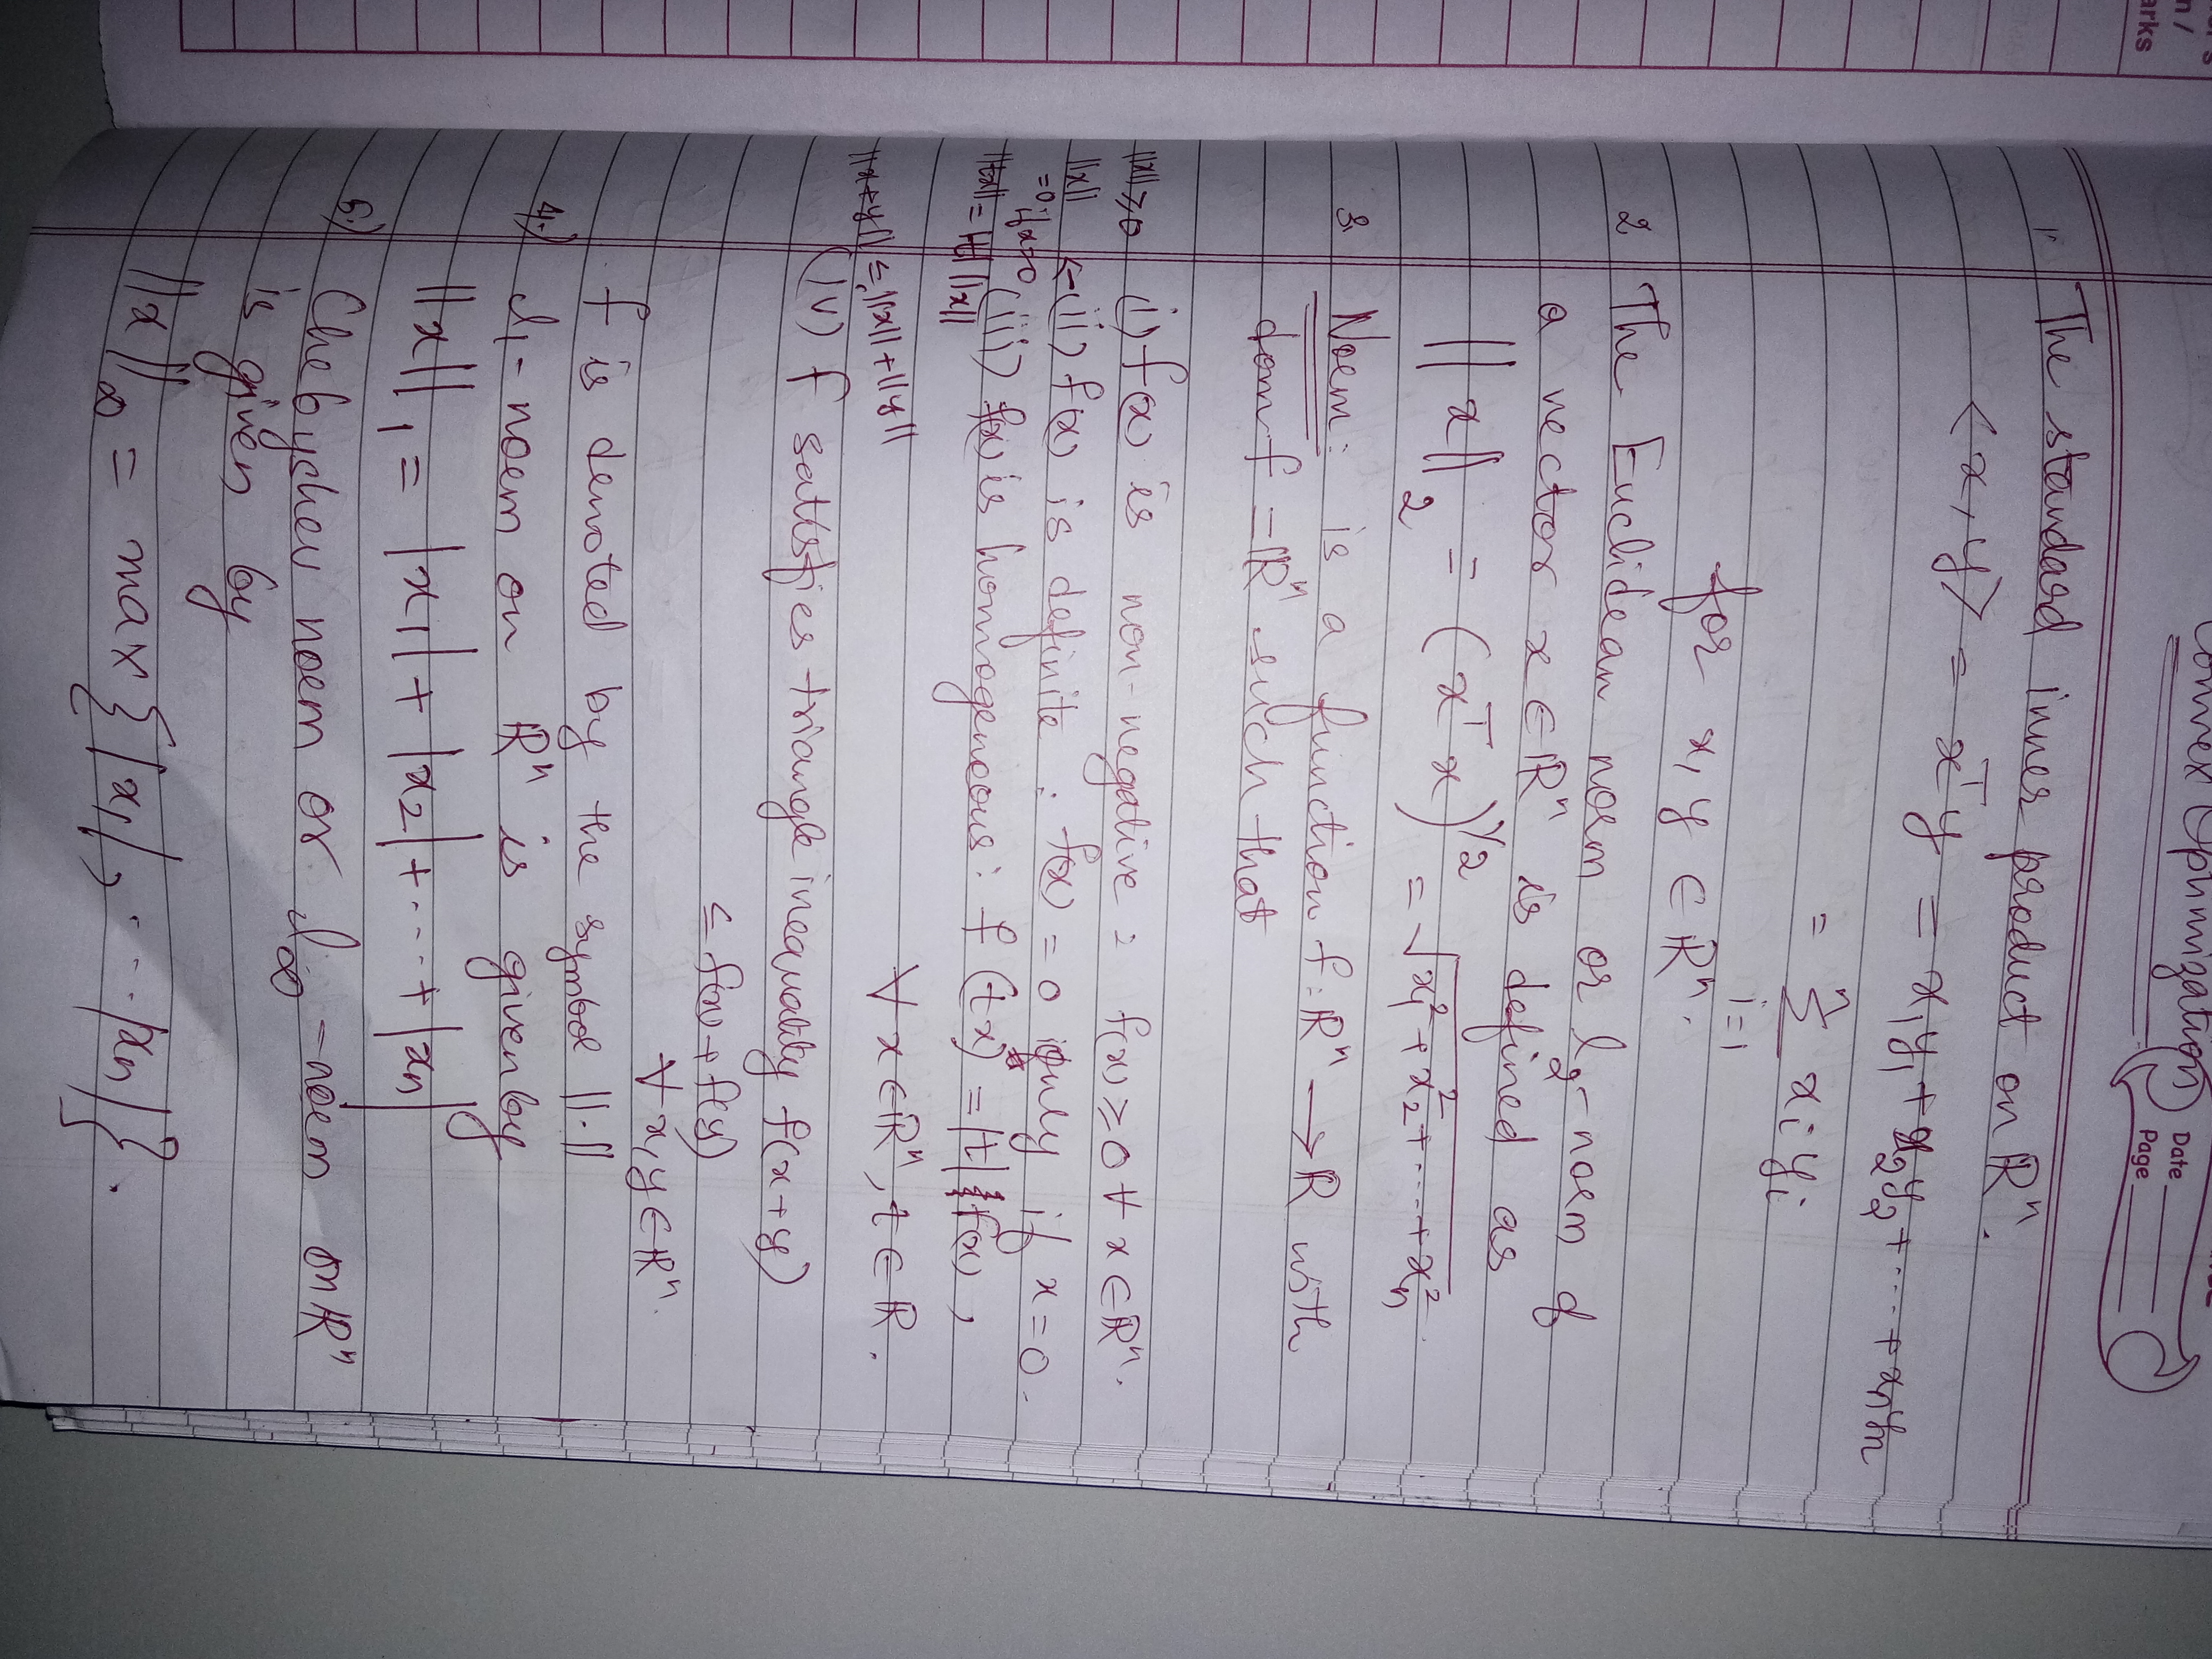 Convex Optimization
Date
Page
1. The standard inner product on ℝⁿ.
<x, y> = xᵀy = x₁y₁ + x₂y₂ + .... + xₙyₙ
= ⁿΣᵢ₌₁ xᵢyᵢ
for x, y ∈ ℝⁿ.
2. The Euclidean norm or l₂-norm of
a vector x ∈ ℝⁿ is defined as
||x||₂ = (xᵀx)^1/2 = √x₁² + x₂² + .... + xₙ².
3. Norm: is a function f: ℝⁿ → ℝ with
dom f = ℝⁿ such that
||x|| ≥ 0 (i) f(x) is non-negative : f(x) ≥ 0 ∀ x ∈ ℝⁿ.
||x|| = 0 if x = 0 ← (ii) f(x) is definite : f(x) = 0 only if x = 0.
||tx|| = |t| ||x|| (iii) f(x) is homogeneous : f(tx) = |t| f(x),
∀ x ∈ ℝⁿ, t ∈ ℝ.
||x+y|| ≤ ||x|| + ||y||
(iv) f satisfies triangle inequality f(x+y)
≤ f(x) + f(y)
∀ x, y ∈ ℝⁿ.
f is denoted by the symbol ||.||
4.) l₁-norm on ℝⁿ is given by
||x||₁ = |x₁| + |x₂| + .... + |xₙ|
5.) Chebyshev norm or l∞-norm on ℝⁿ
is given by
||x||∞ = max {|x₁|, .... |xₙ|}.